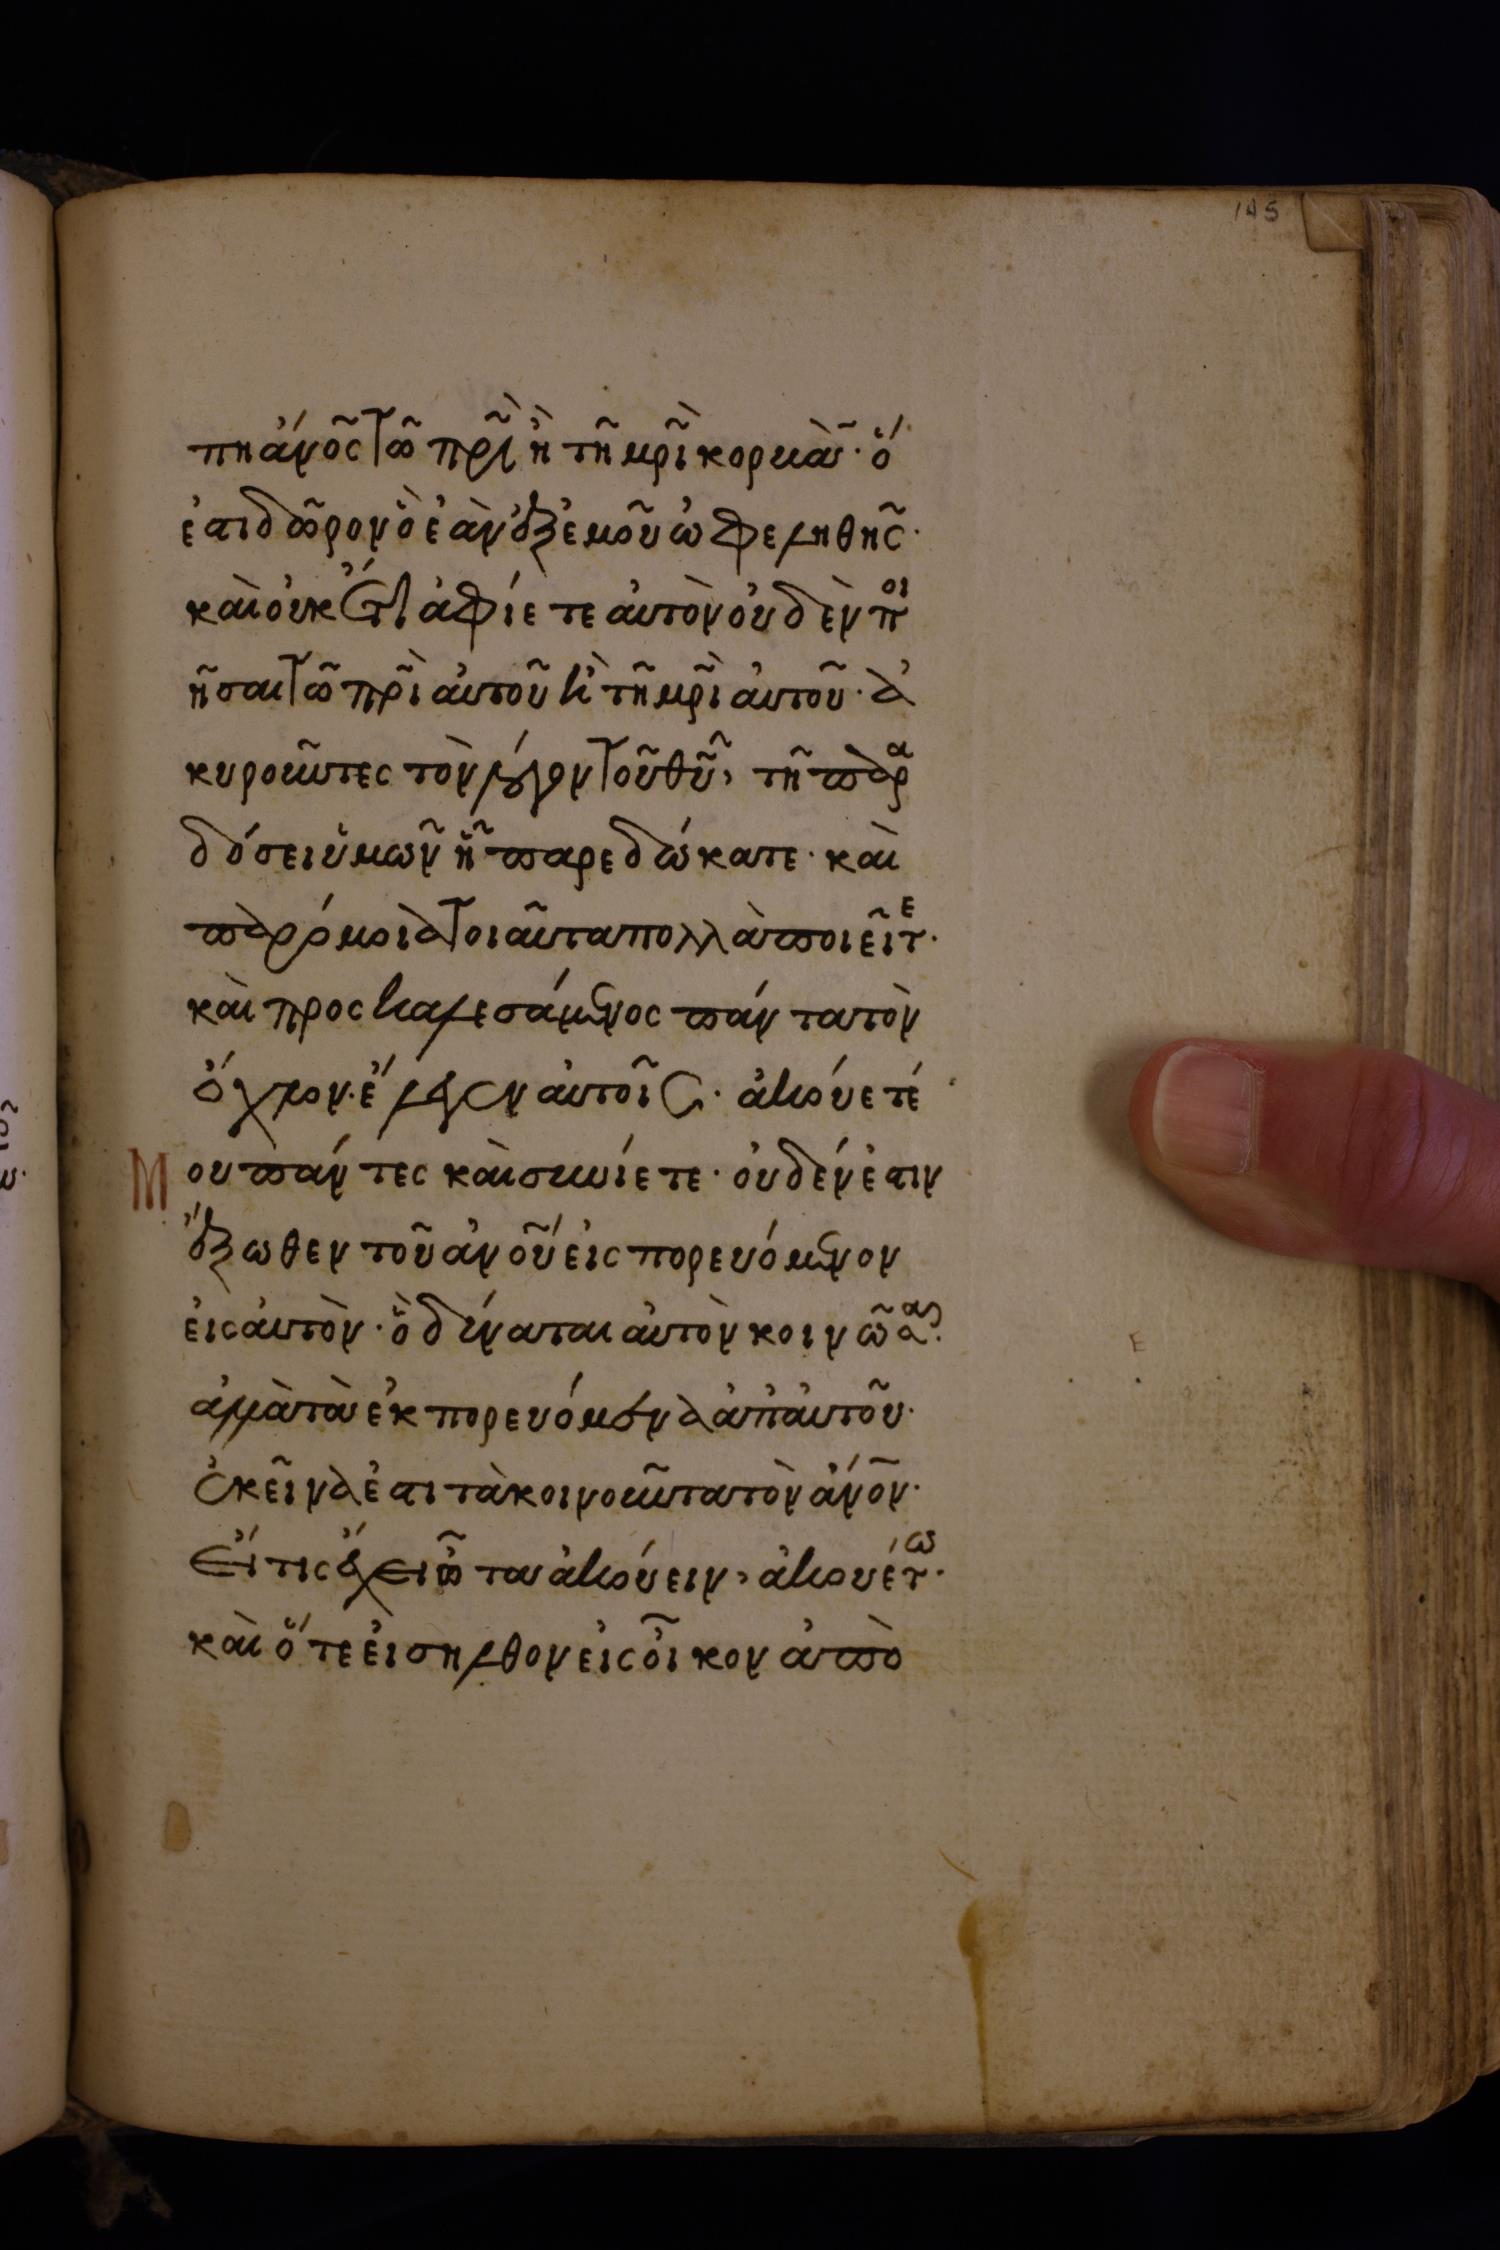 145
πη ἄνος τῶ πρὶ ἢ τῆ μρὶ κορβᾶν· ὅ
ἐστι δῶρον ὃ ἐὰν ἐξ ἐμοῦ ὠφεληθῆς·
καὶ οὐκ ἔτι ἀφίετε αὐτὸν οὐδὲν ποι
ῆσαι τῶ πρὶ αὐτοῦ ἢ τῆ μρὶ αὐτοῦ· ἀ
κυροῦντες τὸν λόγον τοῦ θυ, τῆ παρα
δόσει ὑμῶν ἧ παρεδώκατε· καὶ
παρόμοια τοιαῦτα πολλὰ ποιεῖτε·
καὶ προσκαλεσάμενος πάντα τὸν
ὄχλον· ἔλεγεν αὐτοῖς· ἀκούετέ
μου πάντες καὶ συνίετε· οὐδέν ἐστιν
ἔξωθεν τοῦ ἀνου εἰσπορευόμενον
εἰς αὐτὸν· ὃ δύναται αὐτὸν κοινῶσαι·
ἀλλὰ τὰ ἐκπορευόμενα ἀπ αὐτοῦ·
ἐκεῖνα ἐστι τὰ κοινοῦντα τὸν ἄνον·
Εἴ τις ἔχει ὦτα ἀκούειν, ἀκουέτω·
καὶ ὅτε εἰσῆλθον εἰς οἶκον ἀπὸ